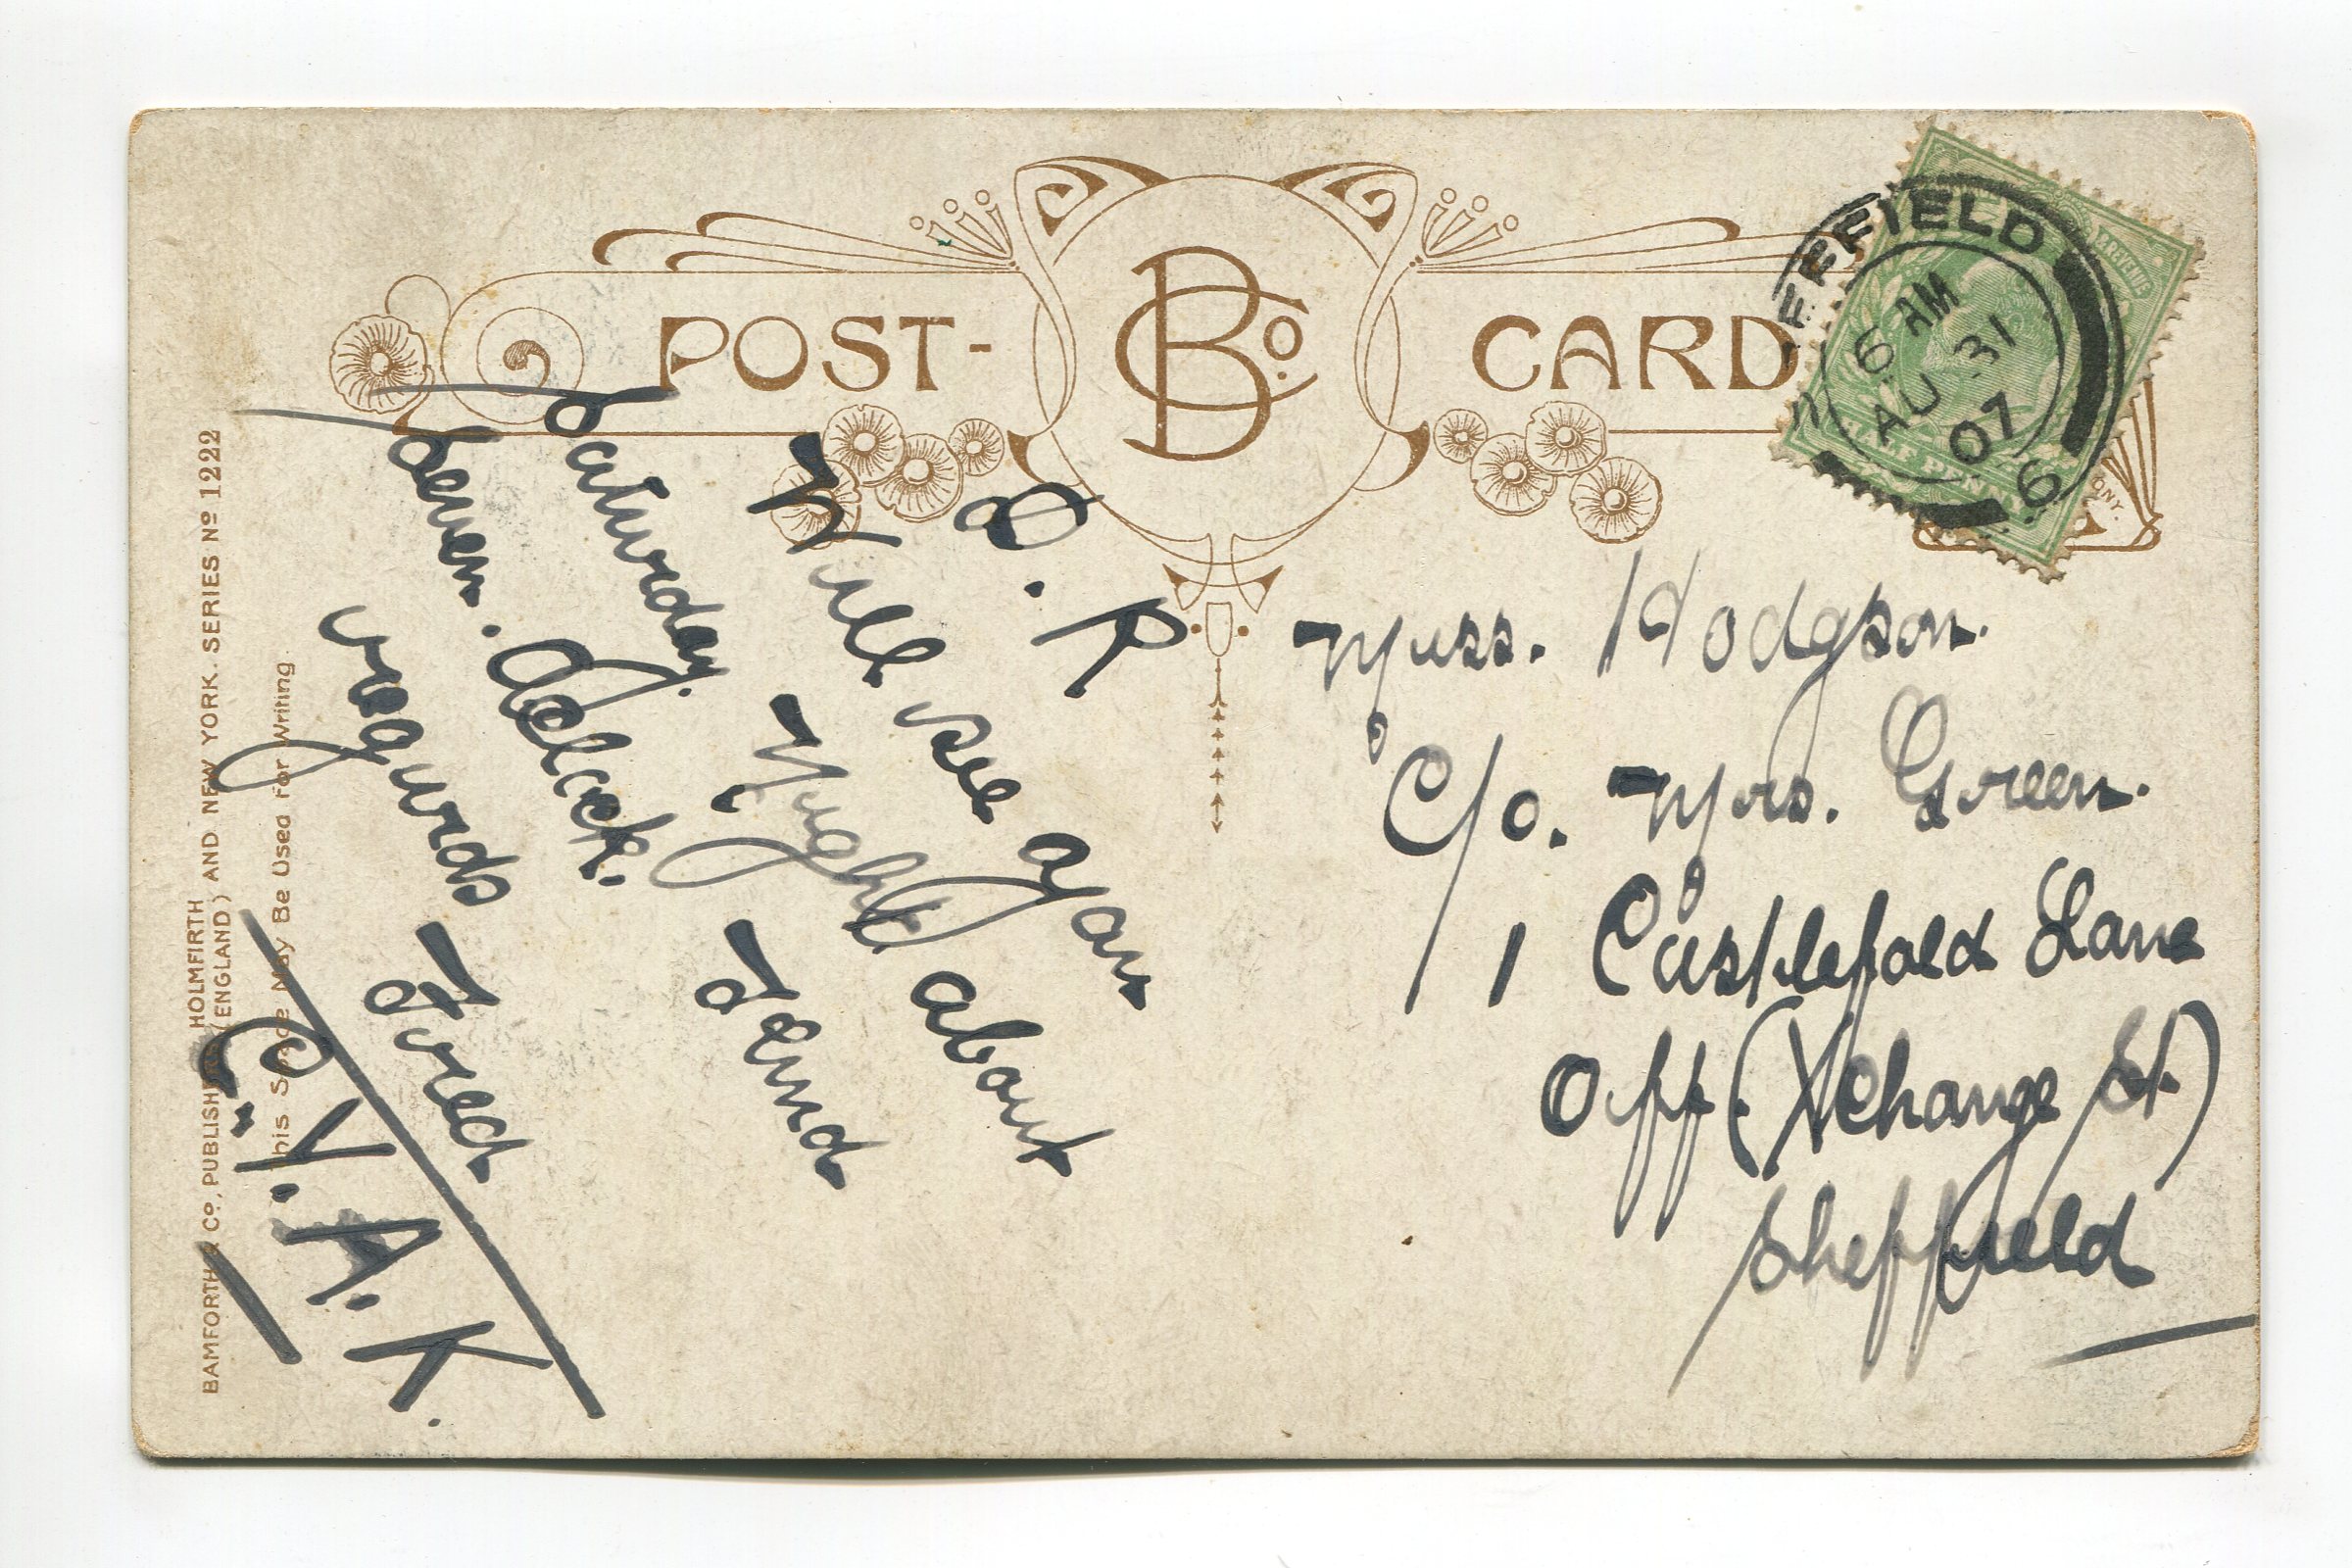 POST-
B Co.
CARD
EFFIELD
6 AM
AU 31
07
6
& REVENUE
HALF PENNY
ONY.
D. R
Will see you
Saturday. Night about
Seven. Oclock. Fond
regards Fred
C. Y. A. K.
Miss. Hodgson.
C/o. Mrs. Green.
1 Castlefold Lane
Off (Xchange St.)
Sheffield
BAMFORTH & Co., PUBLISHERS HOLMFIRTH (ENGLAND) AND NEW YORK. SERIES No 1222
This Space May Be Used For Writing.